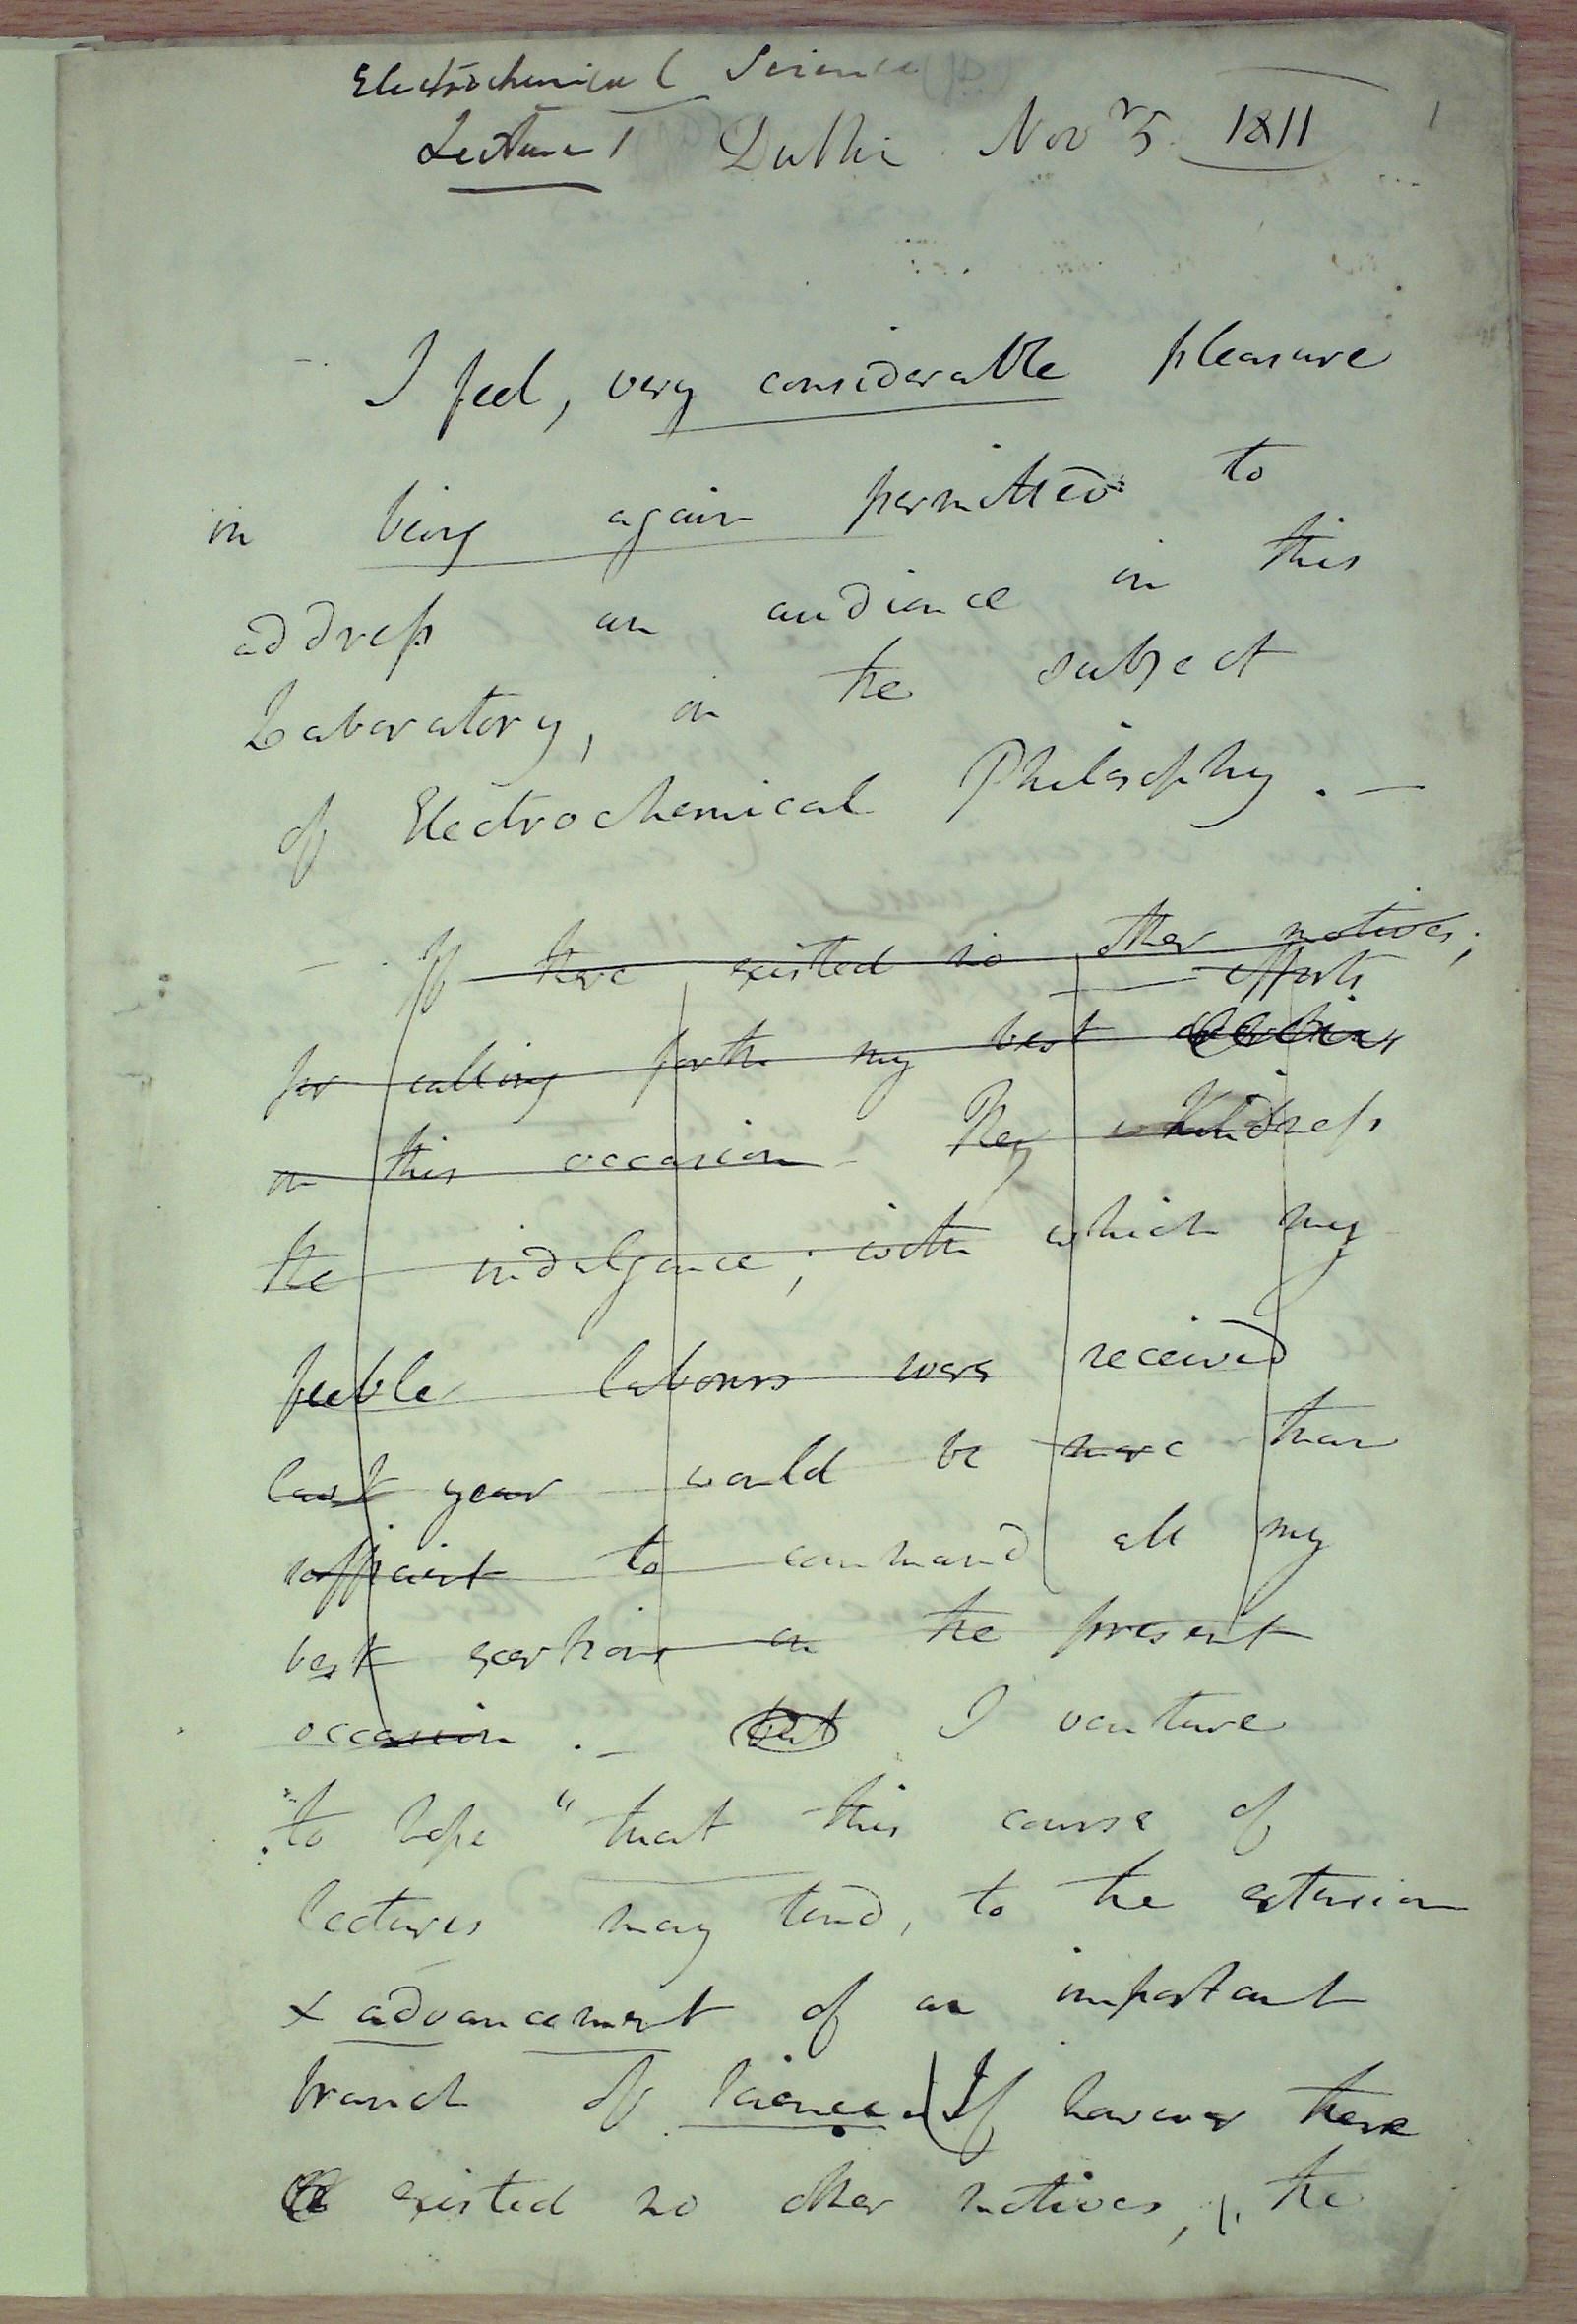 Electrochemical Science
Lecture 1 Dublin Novr 5. 1811
1
I feel, very considerable pleasure
in being again permitted to
address an audience in this
Laboratory, on the subject
of Electrochemical Philosophy. —
If there existed no other motives;
efforts
for calling forth my best
on this occasion They kindness
the indulgence; with which my
feeble labours were received
last year would be more than
sufficient to command all my
best exertions on the present
occasion. — But I venture
to hope "that this course of
lectures may tend, to the extension
& advancement of an important
branch of science. If however there
existed no other motives, the